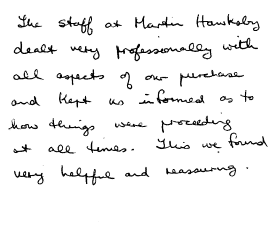 The staff at Martin Hawksby
dealt very professionally with
all aspects of our purchase
and kept us informed as to
how things were proceeding
at all times. This we found
very helpful and reassuring.